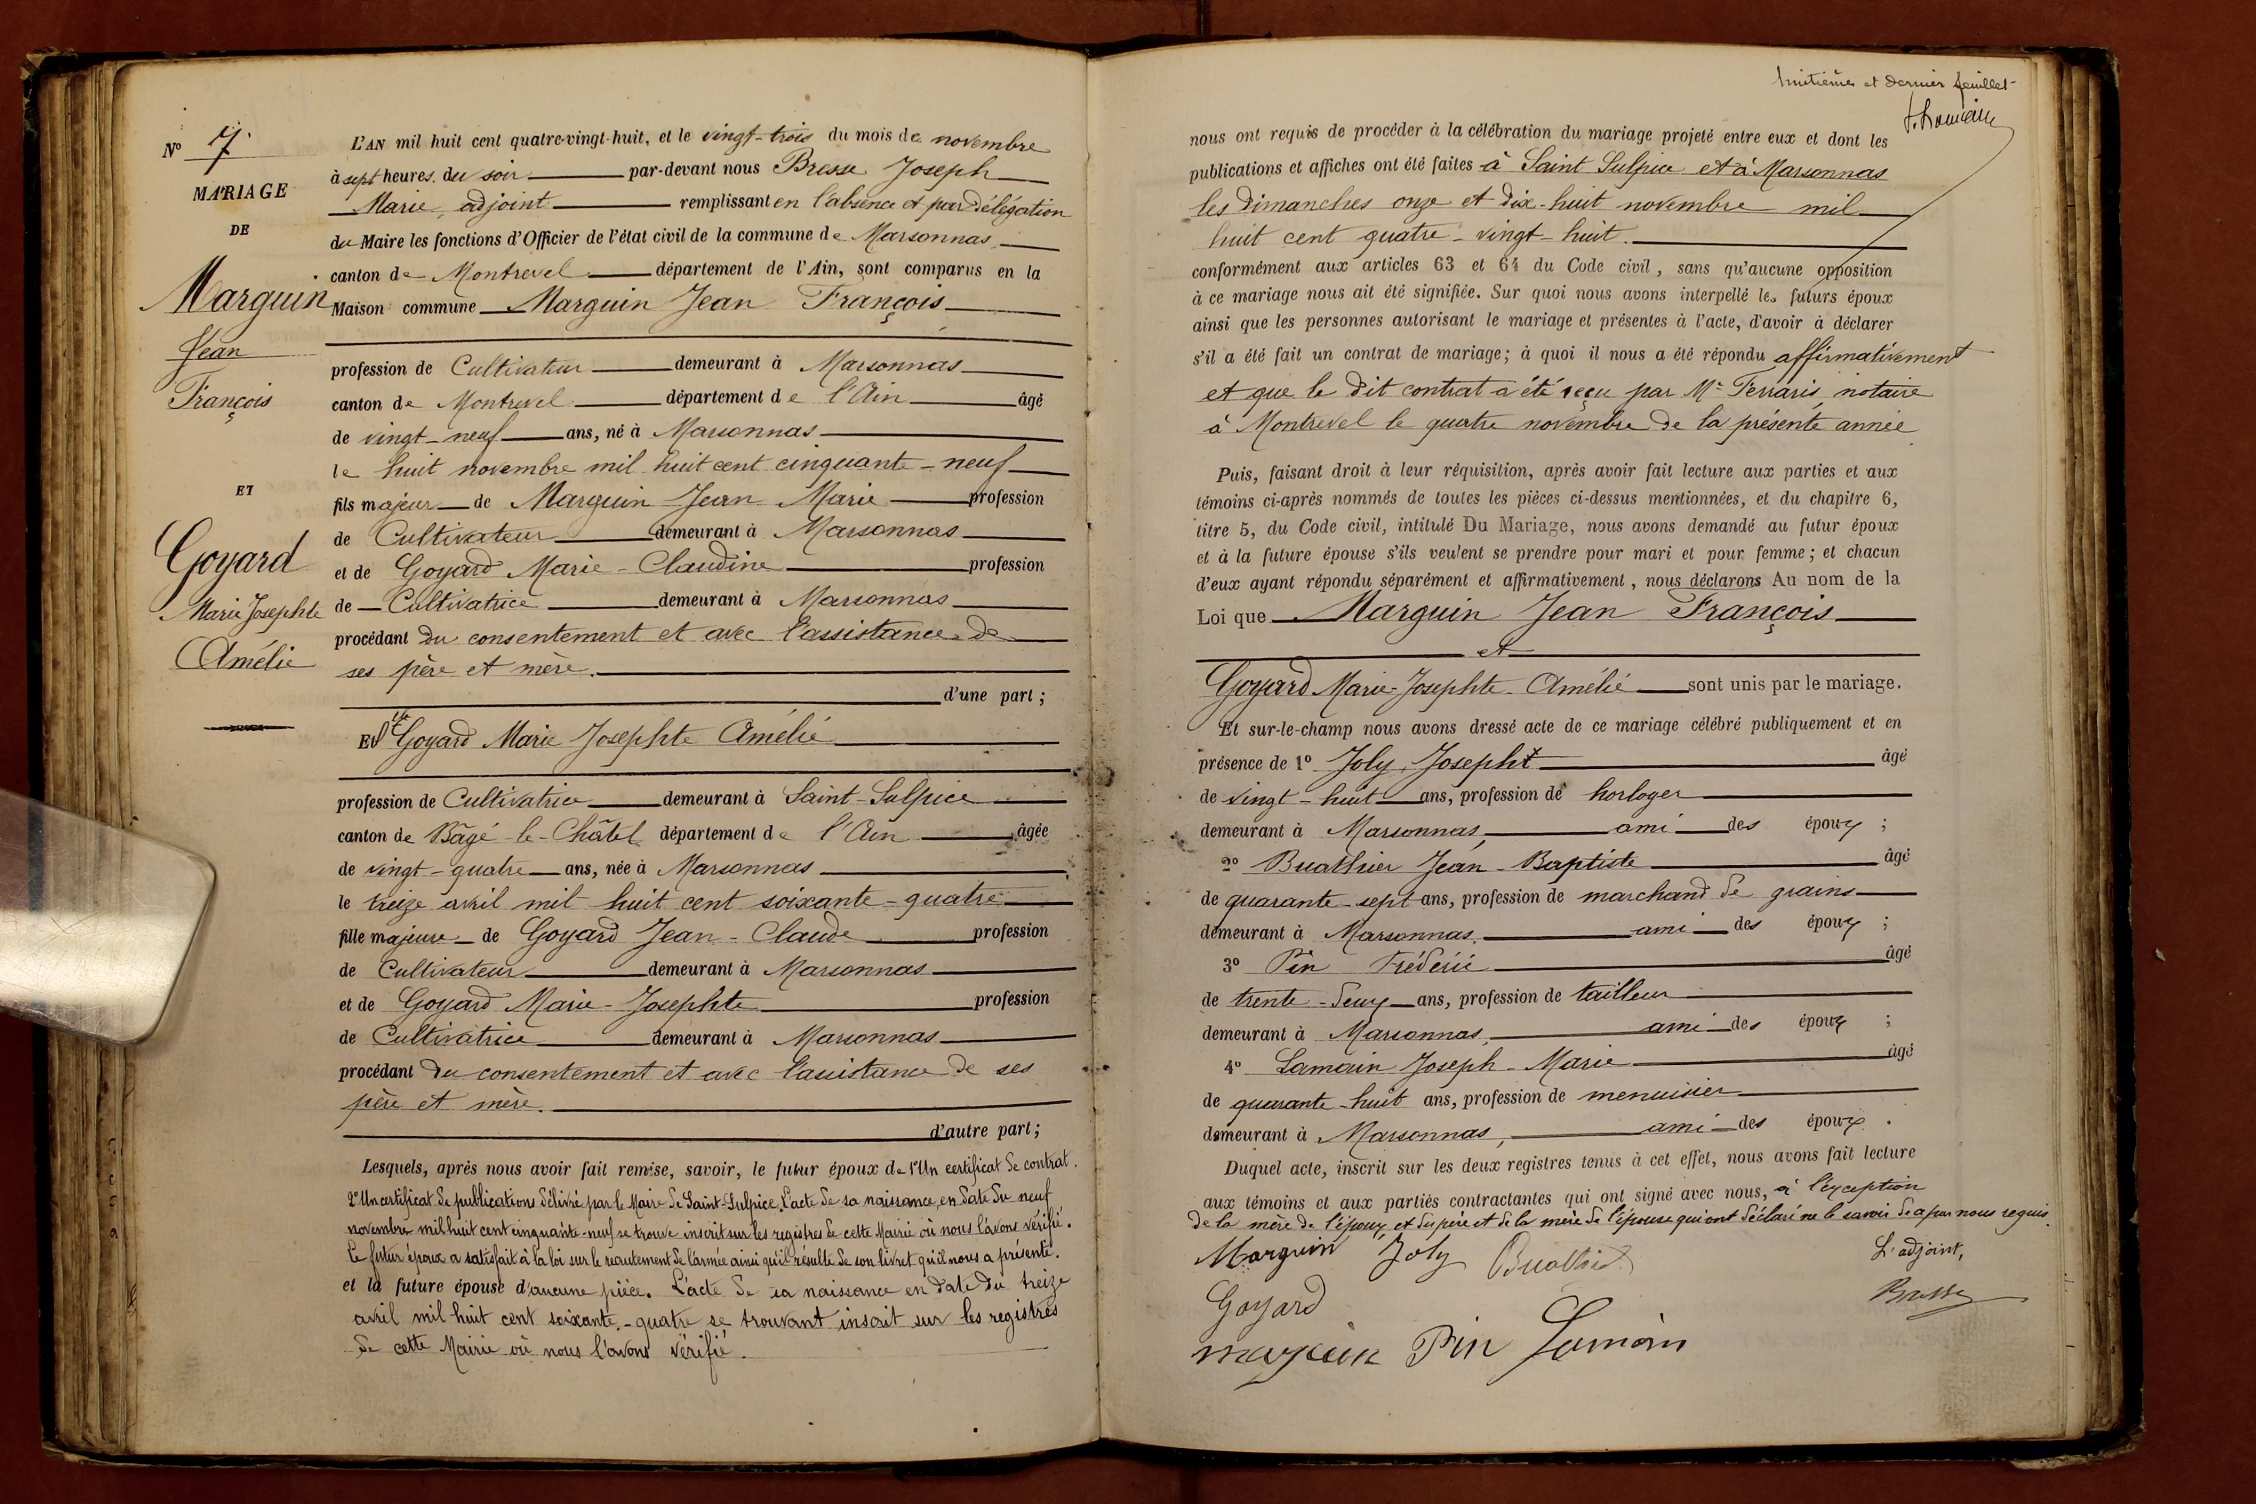 N° 7.
MARIAGE
DE
Marguin
Jean
François
ET
Goyard
Marie Josephte
Amélie
L'AN mil huit cent quatre-vingt-huit, et le vingt-trois du mois de novembre
à sept heures du soir par-devant nous Bresse Joseph
Marie, adjoint remplissant en l'absence et par délégation
du Maire les fonctions d'Officier de l'état civil de la commune de Marsonnas
canton de Montrevel département de l'Ain, sont comparus en la
Maison commune Marguin Jean François
profession de Cultivateur demeurant à Marsonnas
canton de Montrevel département de l'Ain âgé
de vingt-neuf ans, né à Marsonnas
le huit novembre mil huit cent cinquante-neuf
fils majeur de Marguin Jean Marie profession
de Cultivateur demeurant à Marsonnas
et de Goyard Marie-Claudine profession
de Cultivatrice demeurant à Marsonnas
procédant du consentement et avec l'assistance de
ses père et mère.
d'une part ;
Et Goyard Marie Josephte Amélié
profession de Cultivatrice demeurant à Saint-Sulpice
canton de Bâgé-le-Châtel département de l'Ain âgée
de vingt-quatre ans, née à Marsonnas
le treize avril mil huit cent soixante-quatre
fille majeure de Goyard Jean-Claude profession
de Cultivateur demeurant à Marsonnas
et de Goyard Marie-Josephte profession
de Cultivatrice demeurant à Marsonnas
procédant du consentement et avec l'assistance de ses
père et mère.
d'autre part ;
Lesquels, après nous avoir fait remise, savoir, le futur époux de 1° Un certificat de contrat.
2° Un certificat de publications délivré par le Maire de Saint-Sulpice, L'acte de sa naissance, en date du neuf
novembre mil huit cent cinquante-neuf se trouve inscrit sur les registres de cette Mairie où nous l'avons vérifié.
Le futur époux a satisfait à la loi sur le recrutement de l'armée ainsi qu'il résulte de son livret qu'il nous a présenté.
et la future épouse d'aucune pièce. L'acte de sa naissance en date du treize
avril mil huit cent soixante-quatre se trouvant inscrit sur les registres
de cette Mairie où nous l'avons vérifié.
huitième et dernier feuillet
nous ont requis de procéder à la célébration du mariage projeté entre eux et dont les
publications et affiches ont été faites à Saint Sulpice et à Marsonnas
les dimanches onze et dix-huit novembre mil
huit cent quatre-vingt-huit.
conformément aux articles 63 et 64 du Code civil, sans qu'aucune opposition
à ce mariage nous ait été signifiée. Sur quoi nous avons interpellé les futurs époux
ainsi que les personnes autorisant le mariage et présentes à l'acte, d'avoir à déclarer
s'il a été fait un contrat de mariage ; à quoi il nous a été répondu affirmativement
et que le dit contrat a été reçu par Me Ferraris, notaire
à Montrevel le quatre novembre de la présente année
Puis, faisant droit à leur réquisition, après avoir fait lecture aux parties et aux
témoins ci-après nommés de toutes les pièces ci-dessus mentionnées, et du chapitre 6,
titre 5, du Code civil, intitulé Du Mariage, nous avons demandé au futur époux
et à la future épouse s'ils veulent se prendre pour mari et pour femme ; et chacun
d'eux ayant répondu séparément et affirmativement, nous déclarons Au nom de la
Loi que Marguin Jean François
et
Goyard Marie-Josephte-Amélié sont unis par le mariage.
Et sur-le-champ nous avons dressé acte de ce mariage célébré publiquement et en
présence de 1° Joly Joseph âgé
de vingt-huit ans, profession de horloger
demeurant à Marsonnas, ami des époux ;
2° Buathier Jean-Baptiste âgé
de quarante-sept ans, profession de marchand de grains
demeurant à Marsonnas, ami des époux ;
3° Pin Frédéric âgé
de trente-deux ans, profession de tailleur
demeurant à Marsonnas, ami des époux ;
4° Lamain Joseph-Marie âgé
de quarante-huit ans, profession de menuisier
demeurant à Marsonnas, ami des époux.
Duquel acte, inscrit sur les deux registres tenus à cet effet, nous avons fait lecture
aux témoins et aux parties contractantes qui ont signé avec nous, à l'exception
de la mère de l'époux, et du père et de la mère de l'épouse qui ont déclaré ne le savoir de ce par nous requis.
Marguin Joly Buathier L'adjoint,
Goyard Bresse
marguin Pin Lamain